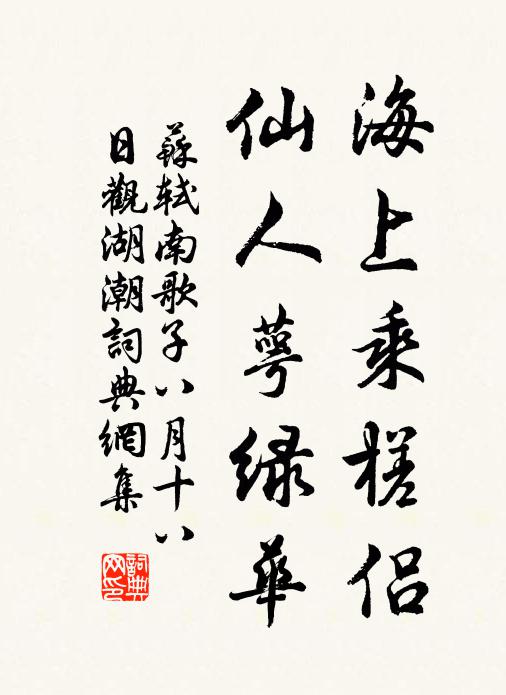 海上乘槎侶
仙人萼緑華
蘇軾南歌子八月十八
日觀湖潮詞典網集
詞典
网印